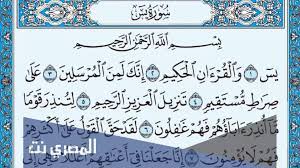 سُورَةُ يسٓ
بِسْمِ ٱللَّهِ ٱلرَّحْمَٰنِ ٱلرَّحِيمِ
يسٓ ١ وَٱلْقُرْءَانِ ٱلْحَكِيمِ ٢ إِنَّكَ لَمِنَ ٱلْمُرْسَلِينَ ٣ عَلَىٰ
صِرَٰطٍ مُّسْتَقِيمٍ ٤ تَنزِيلَ ٱلْعَزِيزِ ٱلرَّحِيمِ ٥ لِتُنذِرَ قَوْمًا
مَّآ أُنذِرَ ءَابَآؤُهُمْ فَهُمْ غَٰفِلُونَ ٦ لَقَدْ حَقَّ ٱلْقَوْلُ عَلَىٰٓ أَكْثَرِهِمْ
فَهُمْ لَا يُؤْمِنُونَ ٧ إِنَّا جَعَلْنَا فِىٓ أَعْنَٰقِهِمْ أَغْلَٰلًا
المصري نت